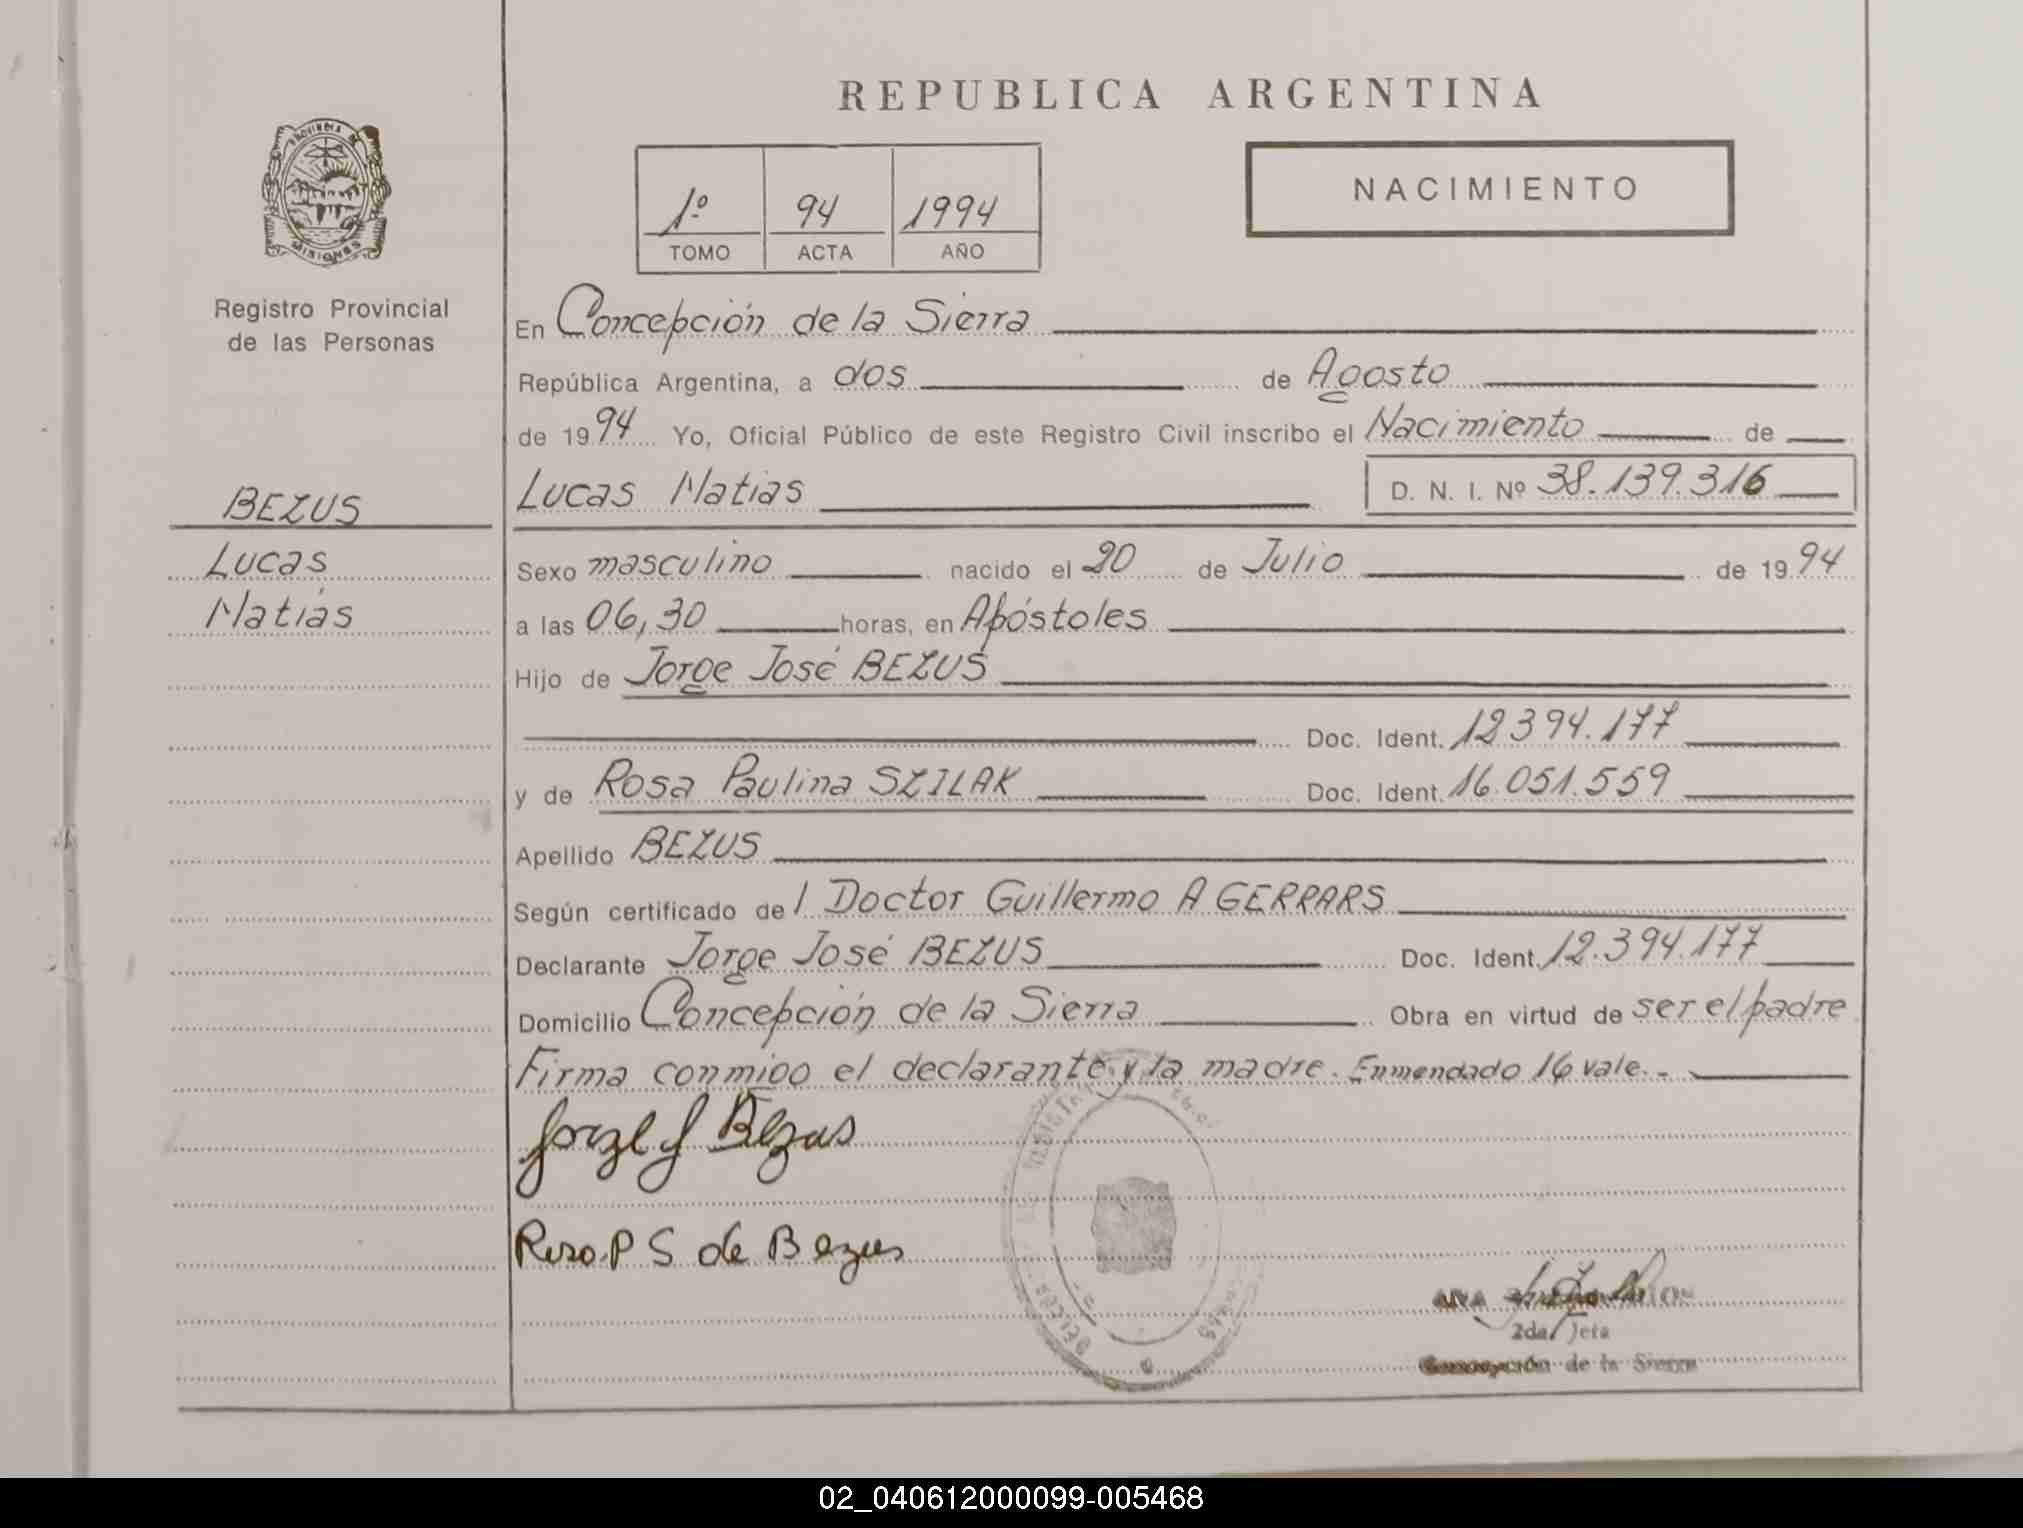 REPUBLICA ARGENTINA
PROVINCIA DE
MISIONES
NACIMIENTO
1º 94 1994
TOMO ACTA AÑO
Registro Provincial
de las Personas
En Concepción de la Sierra
República Argentina, a dos de Agosto
de 1994 Yo, Oficial Público de este Registro Civil inscribo el Nacimiento de
Lucas Matias D. N. I. Nº 38.139.316
BEZUS
Lucas
Matiás
Sexo masculino nacido el 20 de Julio de 1994
a las 06,30 horas, en Apóstoles
Hijo de Jorge José BEZUS
Doc. Ident. 12394.177
y de Rosa Paulina SZILAK Doc. Ident. 16.051.559
Apellido BEZUS
Según certificado de l Doctor Guillermo A GERRARS
Declarante Jorge José BEZUS Doc. Ident. 12.394.177
Domicilio Concepción de la Sierra Obra en virtud de ser el padre
Firma conmigo el declarante y la madre. Enmendado 16 vale.-
Jorge J Bezus
Rosa P S de Bezus
ANA
2da Jefa
Concepción de la Sierra
02_040612000099-005468